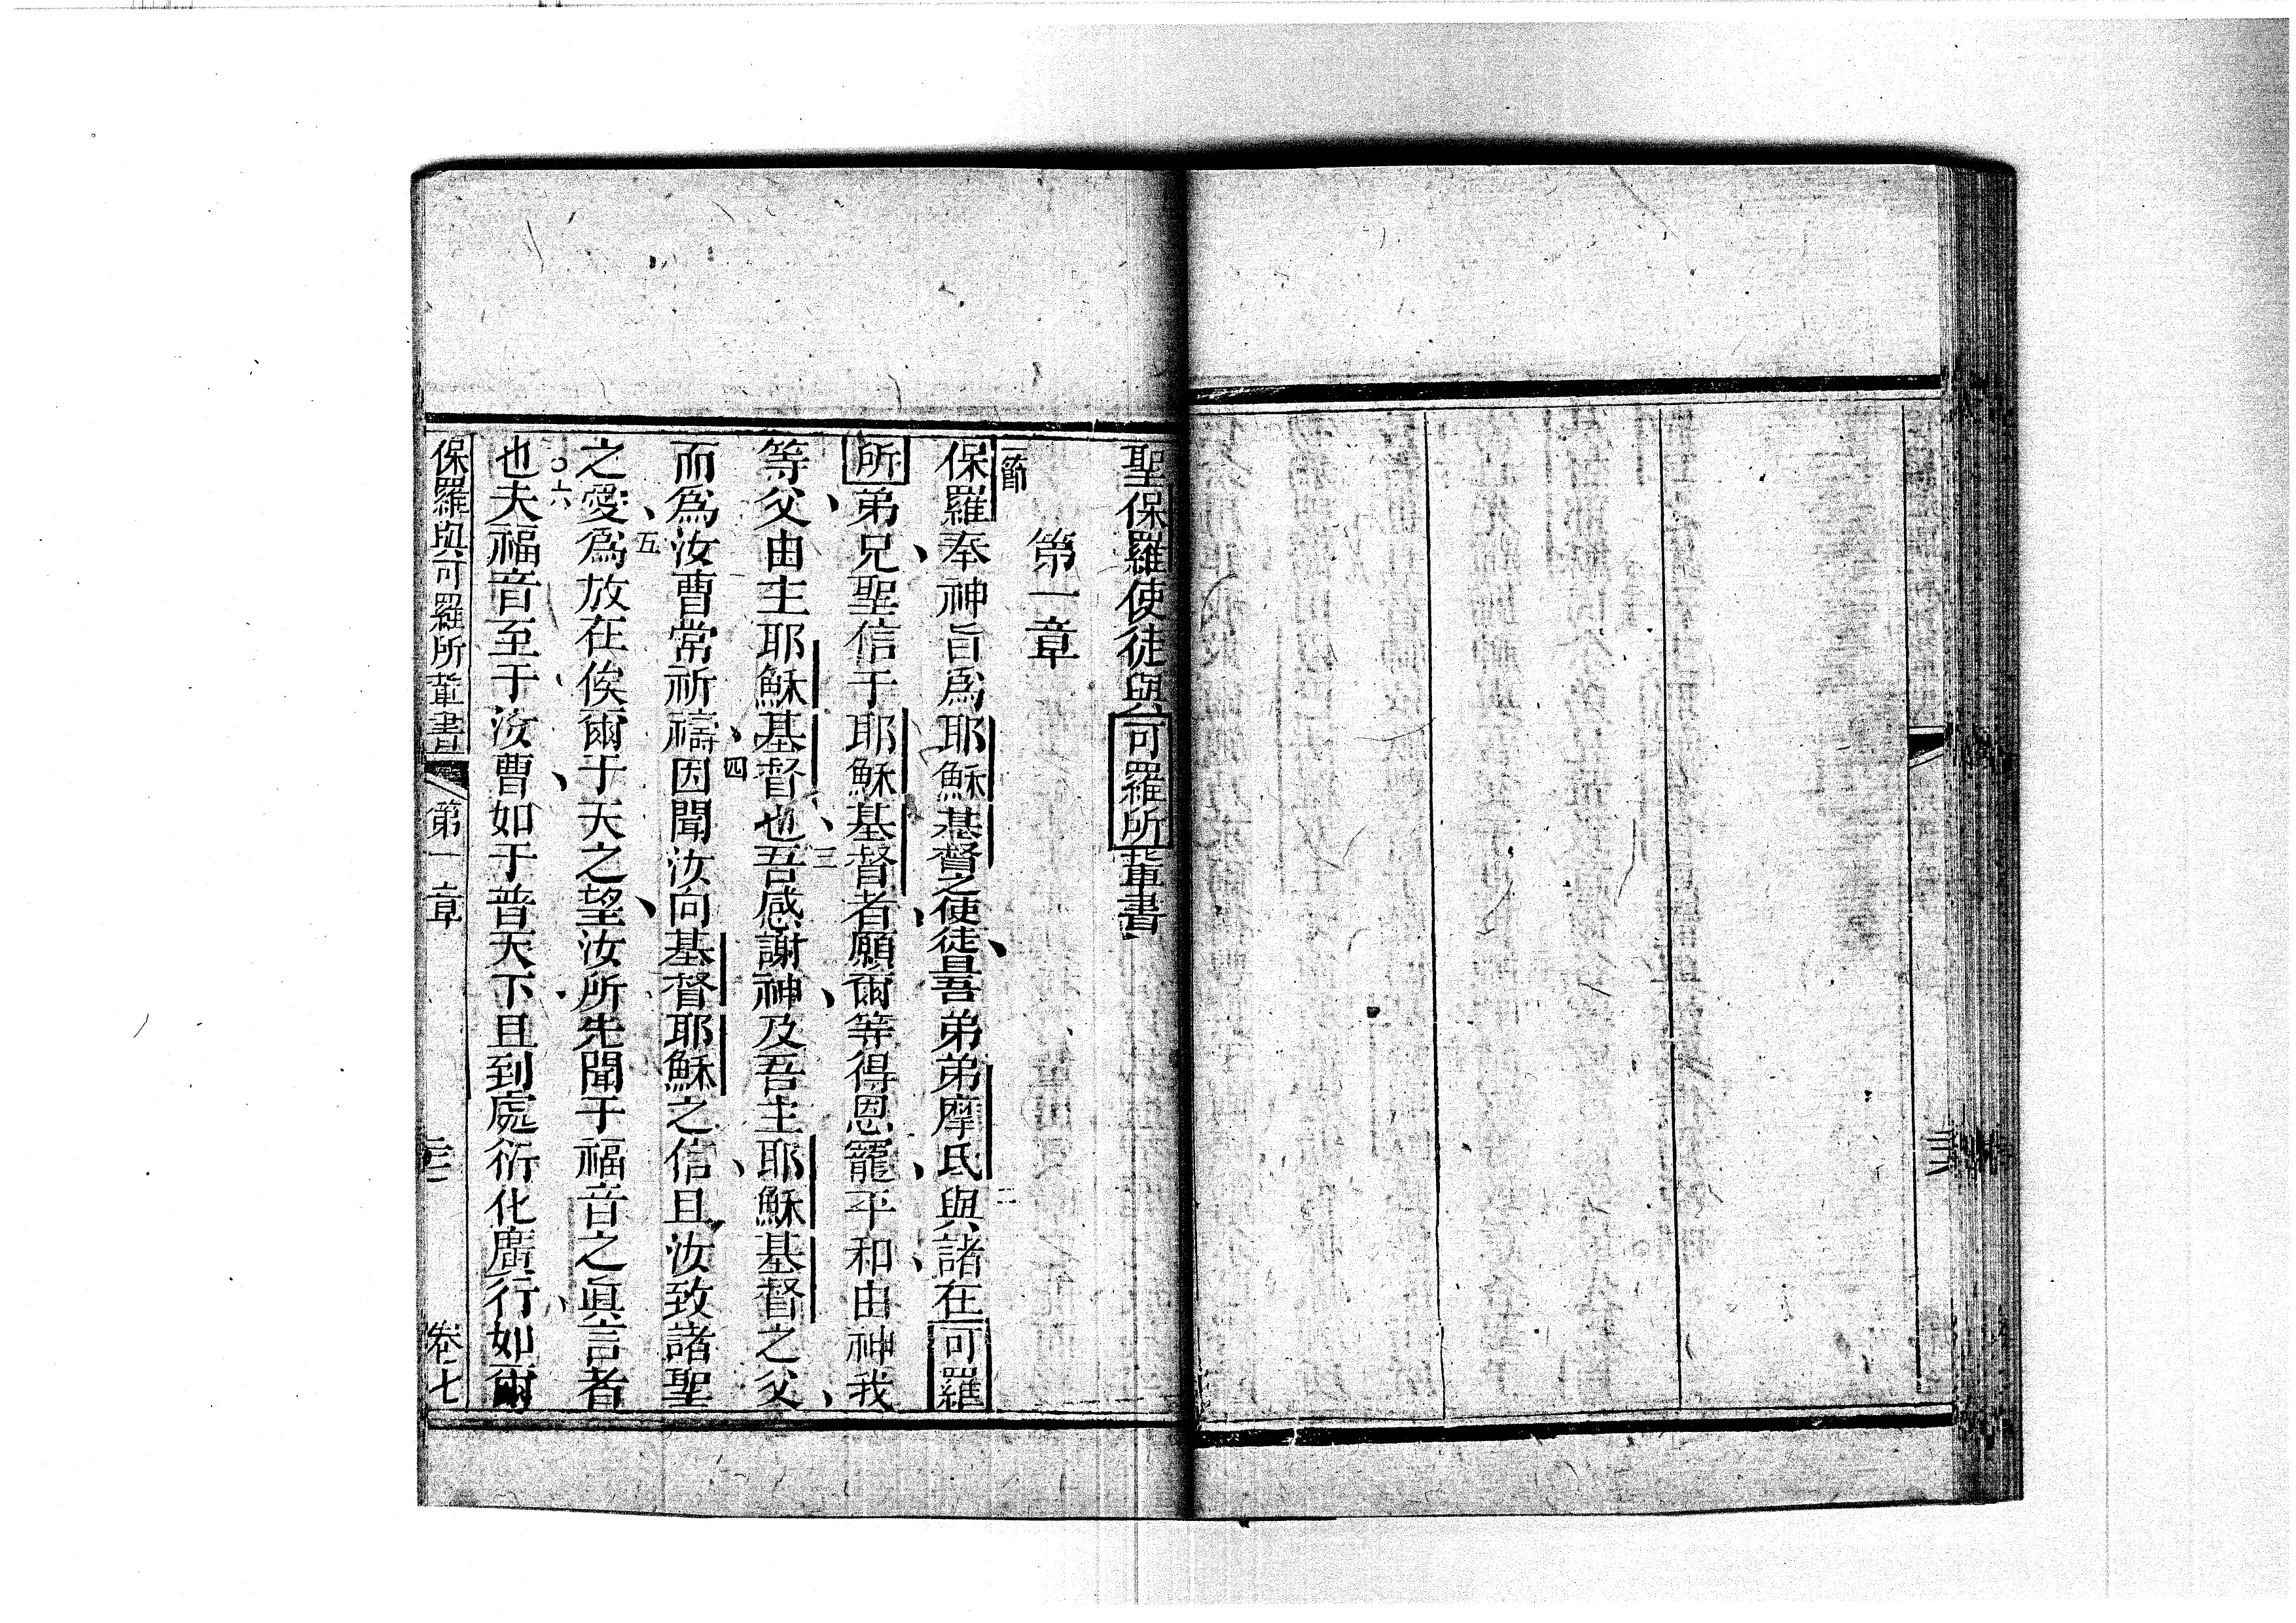 聖保羅使徒與可羅所輩書
第一章
一節
保羅奉神旨爲耶穌基督之使徒且吾弟弟摩氐與諸在可羅
二
所弟兄聖信于耶穌基督者願爾等得恩寵平和由神我
等父由主耶穌基督也吾感謝神及吾主耶穌基督之父
三
而爲汝曹常祈禱因聞汝向基督耶穌之信且汝致諸聖
四
之愛爲放在俟爾于天之望汝所先聞于福音之眞言者
五
也夫福音至于汝曹如于普天下且到處衍化廣行如爾
六
保羅與可羅所輩書 第一章 卷七